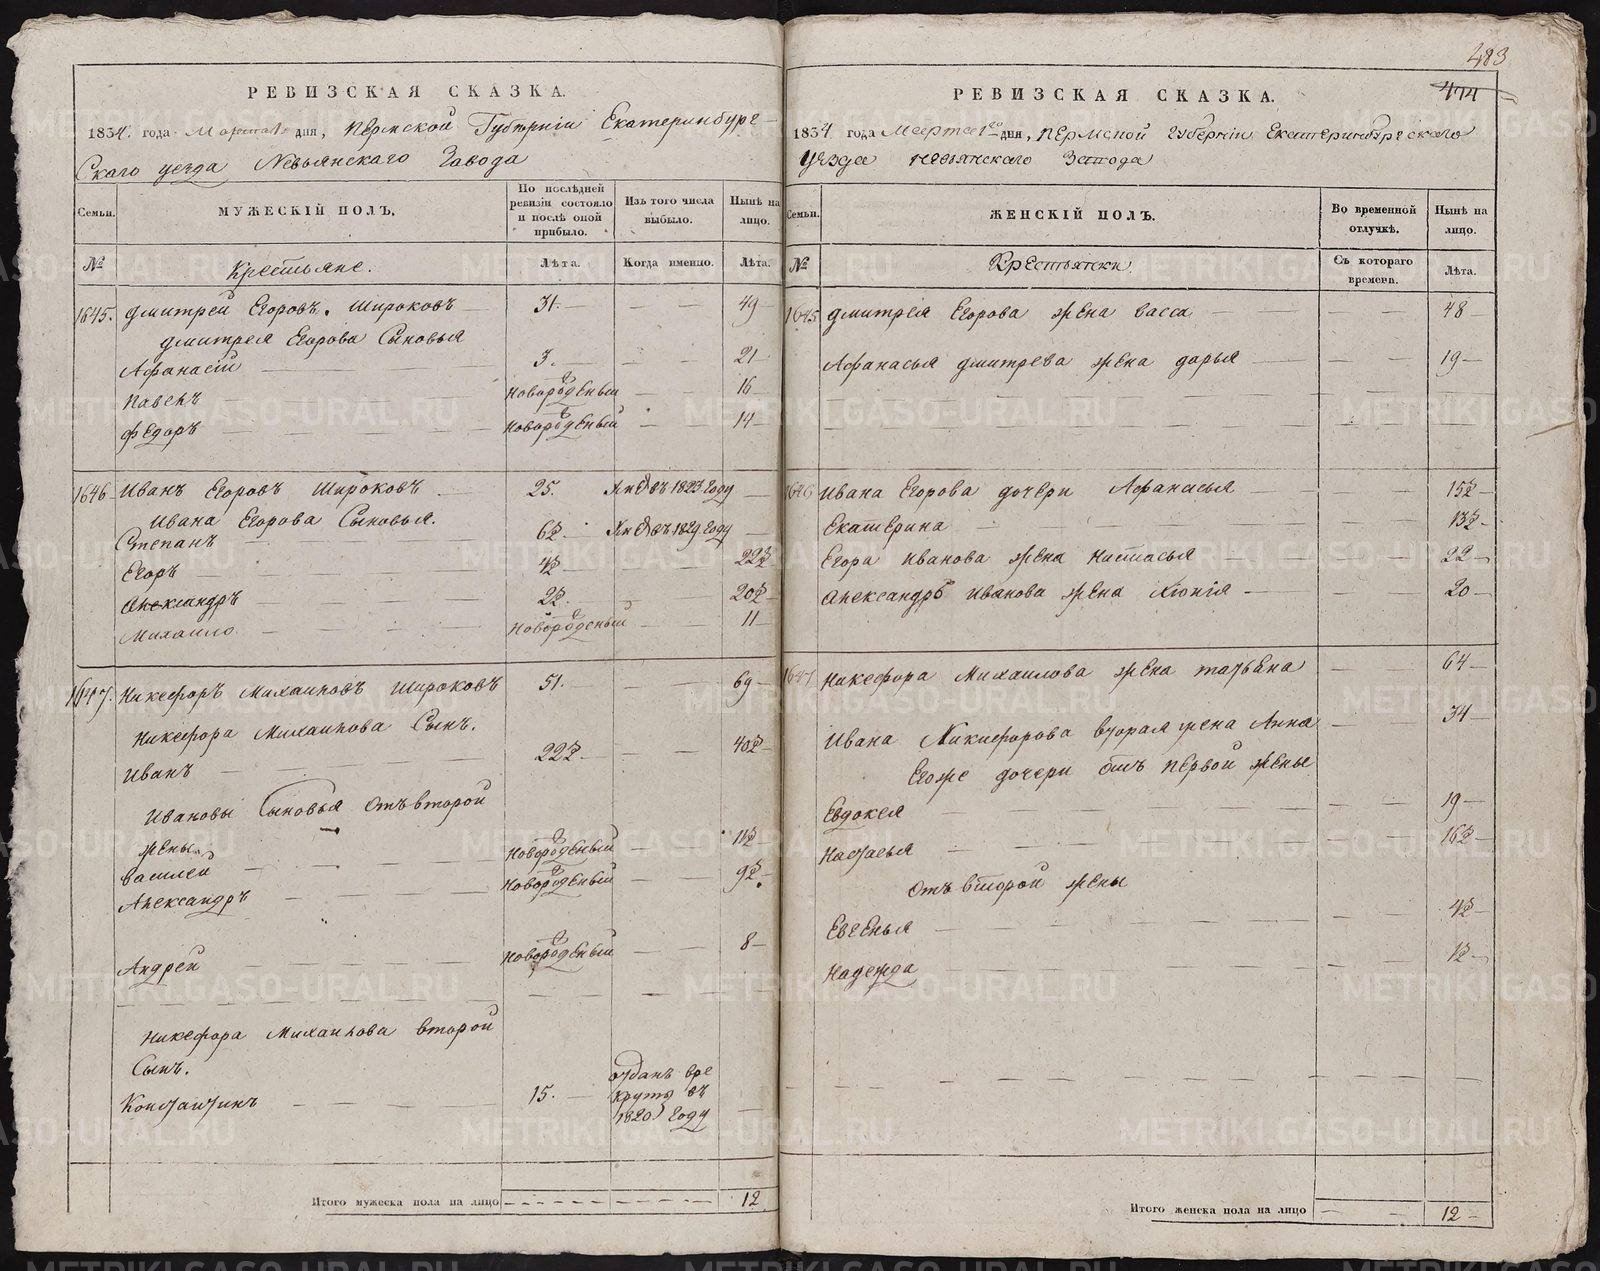 РЕВИЗСКАЯ СКАЗКА.
1834. года Марта дня, Пермской Губерніи Екатеринбург-
Скаго уезда Невьянскаго Завода
Семьи.
МУЖЕСКІЙ ПОЛЪ.
По послѣдней ревизіи состояло и послѣ оной прибыло.
Изъ того числа выбыло.
Нынѣ на лицо.
№
Крестьяне.
Лѣта.
Когда именно.
Лѣта.
1645. Дмитрей Егоровъ Широковъ 31. 49
Дмитрея Егорова Сыновья
Афанасій 3. 21
Павелъ новорожденый 16
Федоръ новорожденый 14
1646 Иванъ Егоровъ Широковъ 25. въ 1823 году
Ивана Егорова Сыновья.
Степанъ 6½. въ 1829 году
Егоръ 4½ 22½
Александръ 2½. 20½
Михаило новорожденый 11
1647. Никефоръ Михаиловъ Широковъ 51. 69
Никефора Михаилова Сынъ.
Иванъ 22½ 40½
Ивановы Сыновья отъ второй
жены
Василей новорожденый 11½
Александръ новорожденый 9½
Андрей новорожденый 8
Никефора Михаилова второй
Сынъ.
Константинъ 15. отданъ вре
круты въ
1820 году
Итого мужеска пола на лицо 12
483
474
РЕВИЗСКАЯ СКАЗКА.
1834 года Марта 1го дня, Пермской губерніи Екатеринбургскаго
уезда Невьянскаго Завода
Семьи.
ЖЕНСКІЙ ПОЛЪ.
Во временной отлучкѣ.
Нынѣ на лицо.
№
Крестьянки.
Съ котораго времени.
Лѣта.
1645 Дмитрея Егорова жена Васса 48
Афанасья Дмитрева жена Дарья 19
1646 Ивана Егорова дочери Афанасья 15½
Екатерина 13½
Егора Иванова жена Настасья 22
Александра Иванова жена Хіонія 20
1647 Никефора Михаилова жена Татьяна 64
Ивана Никифорова вторая жена Анна 34
Егоже дочери отъ первой жены
Евдокея 19
Настасья 16½
Отъ второй жены
Евгенья 4½
Надежда 1½
Итого женска пола на лицо 12
METRIKI.GASO-URAL.RU